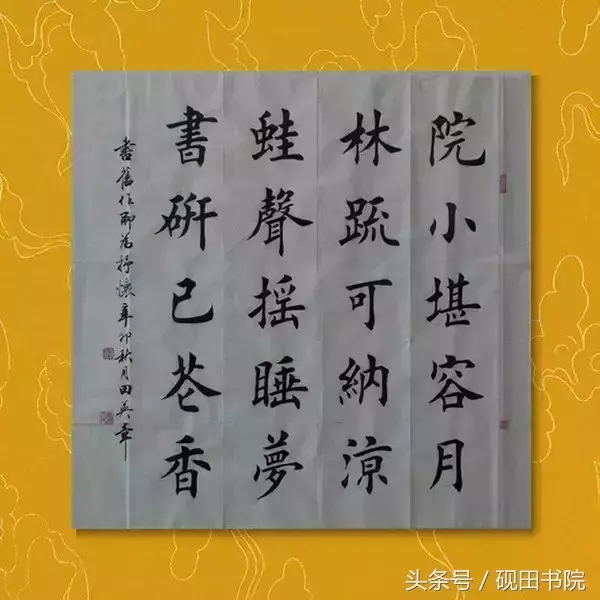 院小堪容月
林疏可納涼
蛙聲摇睡夢
書硏已花香
書舊作聊為抒懷辛卯秋月田英章
头条号 / 砚田书院